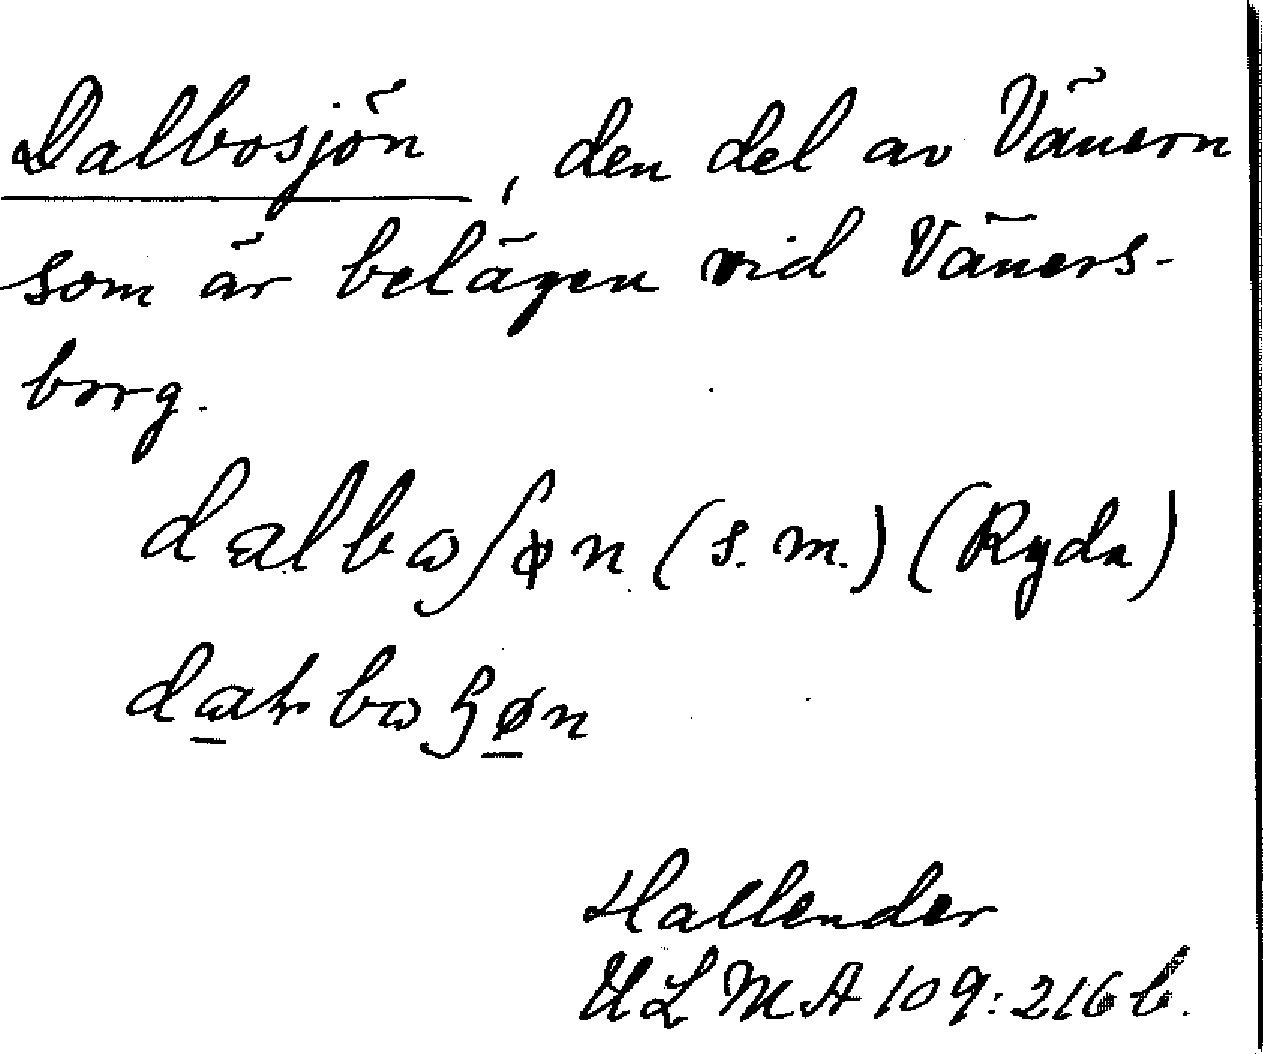 Dalbosjön, den del av Vänern
som är belägen vid Väners-
borg.
dalbωʃɸn (s. m.) (Ryda)
Hallender
ULMA 109:216 b.